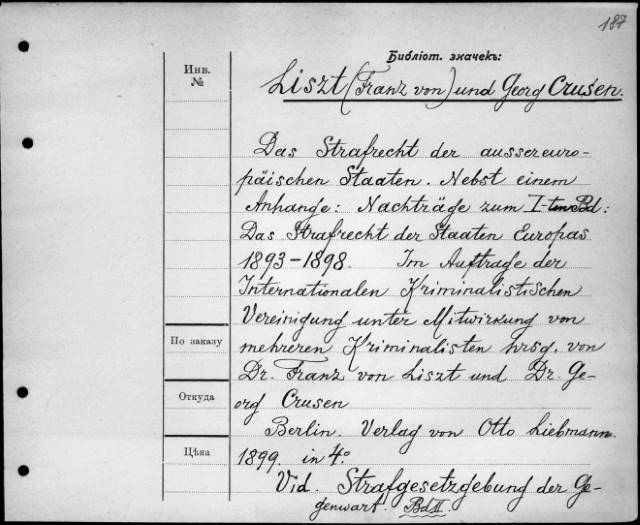 187
Библіот. значекъ:
Инв.
№
Liszt (Franz von) und Georg Crusen.
Das Strafrecht der aussereuro-
päischen Staaten. Nebst einem
Anhange: Nachträge zum I-ten Bd:
Das Strafrecht der Staaten Europas
1893-1898. Im Auftrage der
Internationalen Kriminalistischen
Vereinigung unter Mitwirkung von
По заказу
mehreren Kriminalisten hrsg. von
Dr. Franz von Liszt und Dr. Ge-
Откуда
org Crusen
Berlin. Verlag von Otto Liebmann.
Цѣна
1899. in 4°
Vid. Strafgesetzgebung der Ge-
genwart. Bd II.